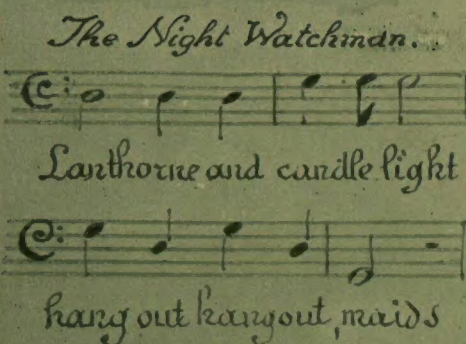 The Night Watchman..
Lanthorne and candle light
hang out hang out, maids